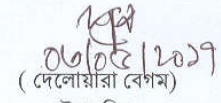 ০৬/০৫/২০১৭
( দেলোয়ারা বেগম)